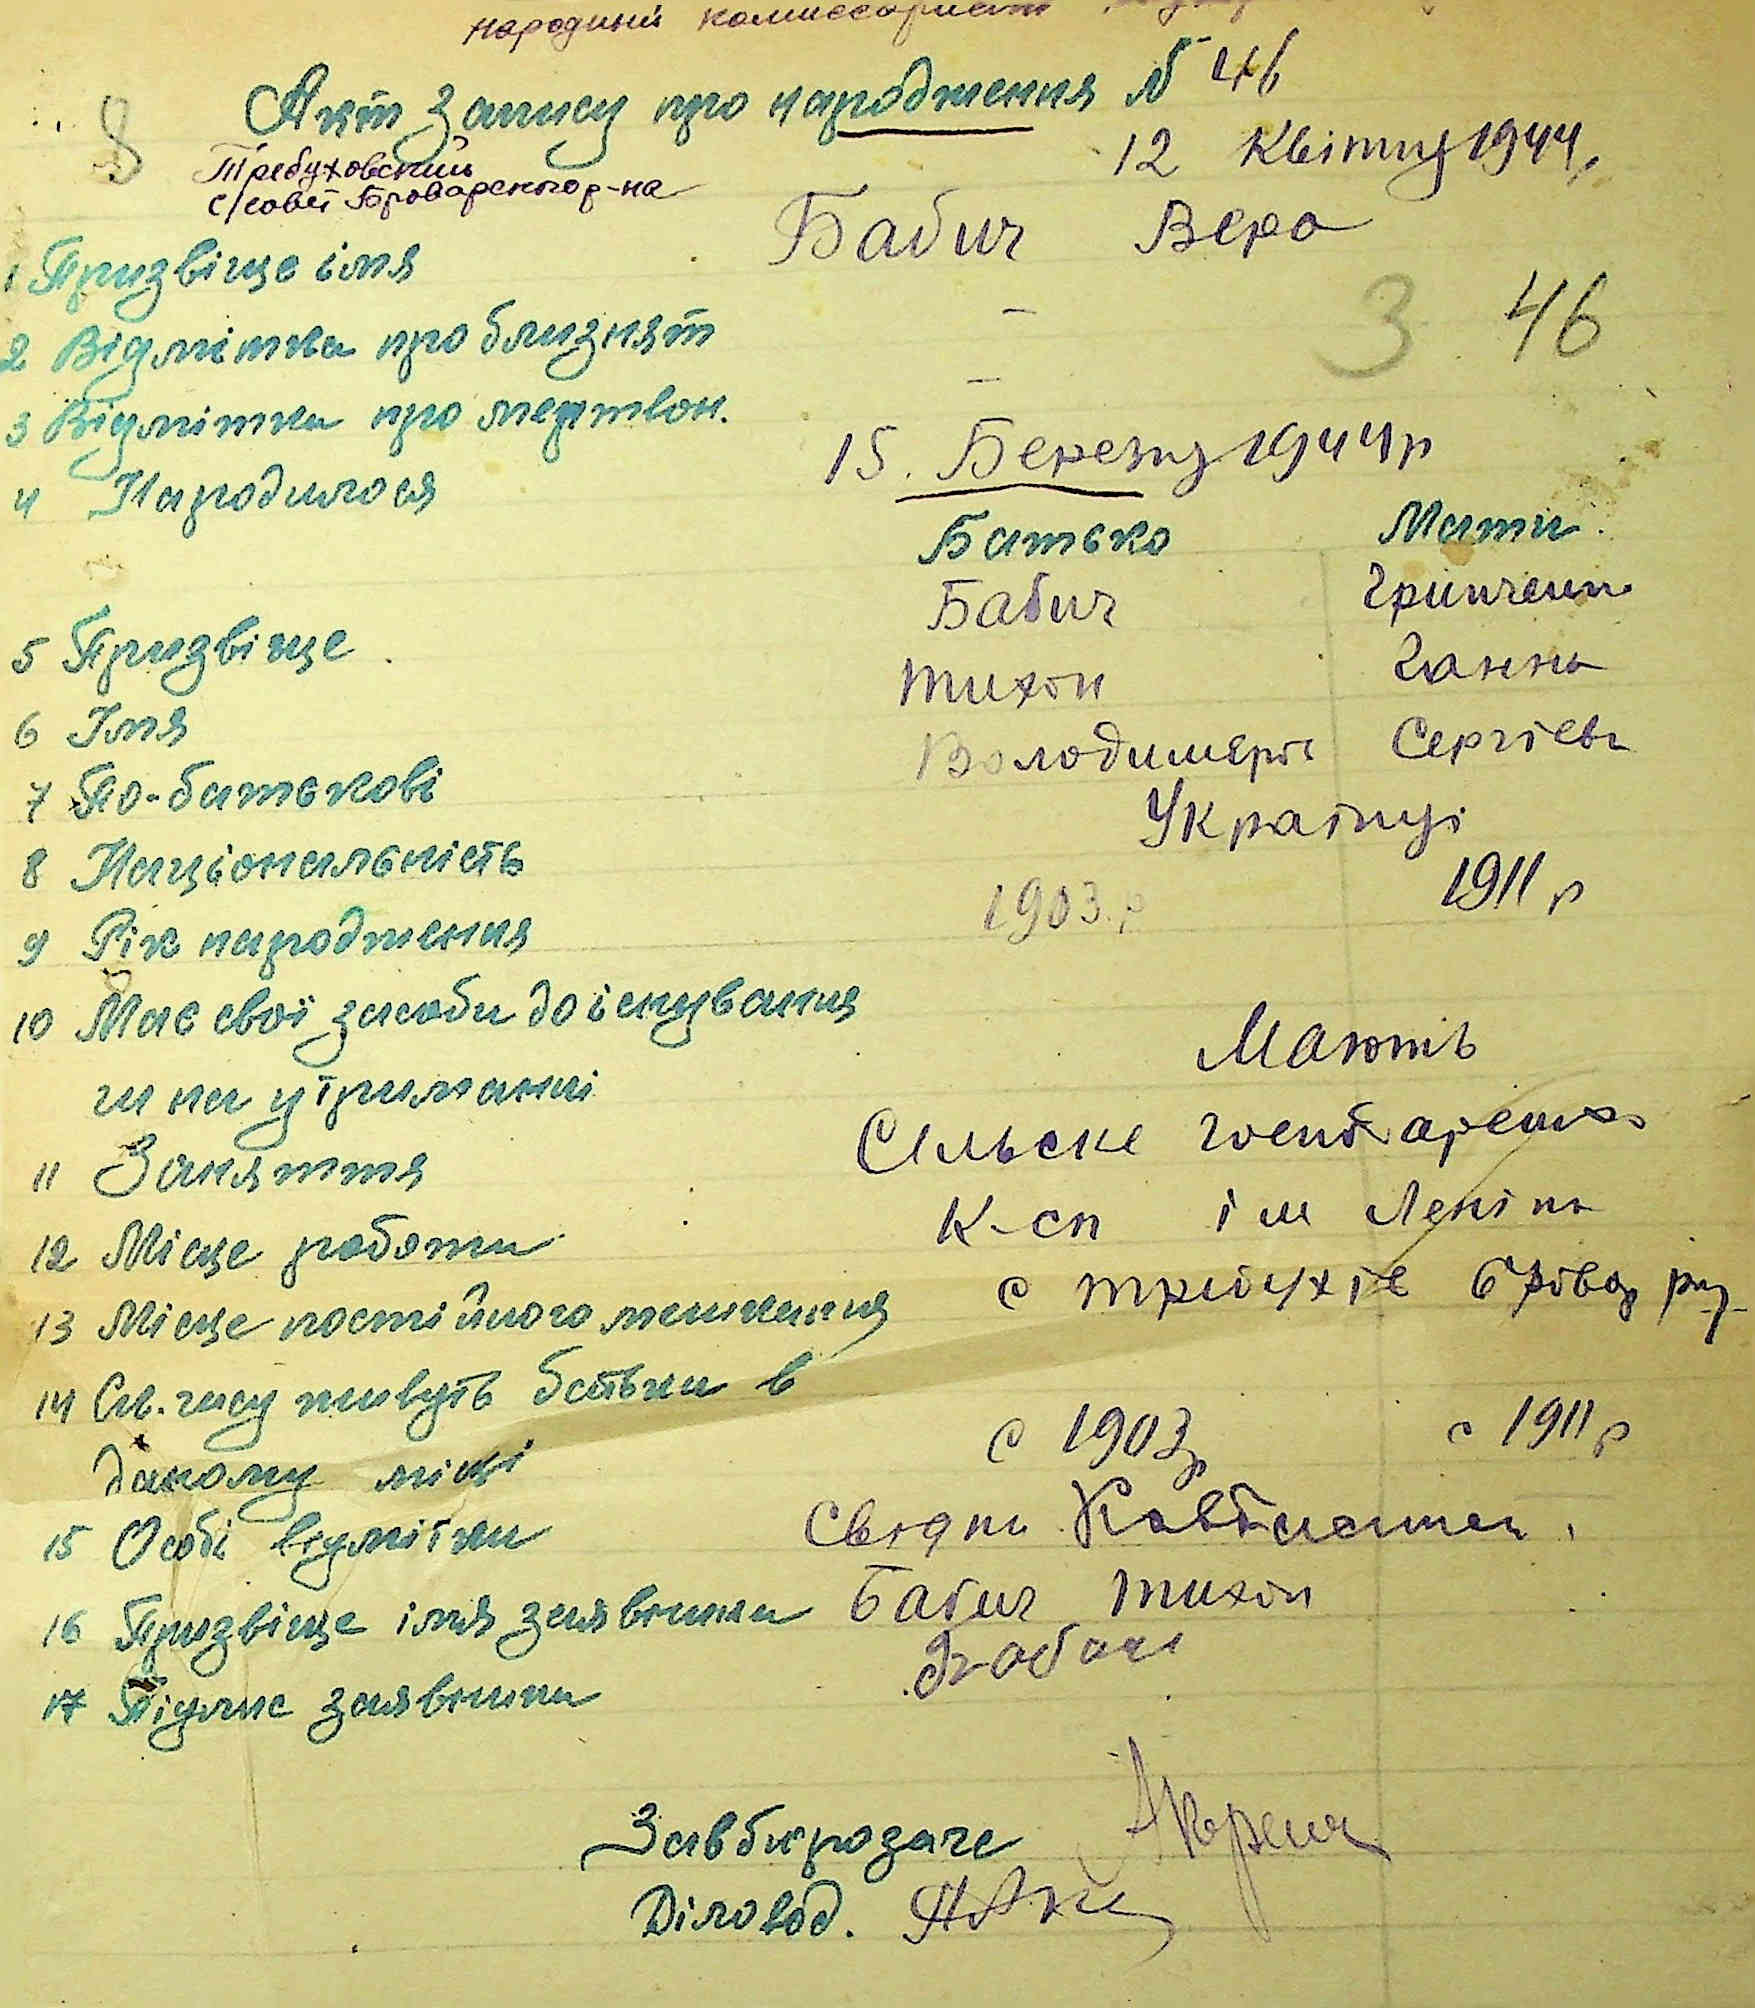 народний комиссариат
Акт запису про народження № 46
8
12 Квітня 1944р
Требуховский
с/совет Броварского р-на
1 Призвіще імя Бабич Вера
2 Відмітка про близнят –
3 46
3 Відмітка про мертвон. –
4 Народилося 15. Березня 1944р
Батько Мати.
5 Призвіще Бабич Гринченко
6 Імя Тихон Ганна
7 По-батькові Володимиров Сергіевн
8 Національність Українці
9 Рік народження 1903.р 1911 р
10 Має свої засоби до існування
чи на утриманні Мають
11 Заняття Сільське
12 Місце роботи К-сп ім Леніна
13 Місце постійного мешкання с Требухів Бровар рну
14 Ск. часу живуть батьки в
даному місці с 1903р с 1911 р
15 Особі відмітки Свідки
16 Призвіще імя заявника Бабич Тихон
17 Підпис заявника
Завбюрозагс
Діловод.